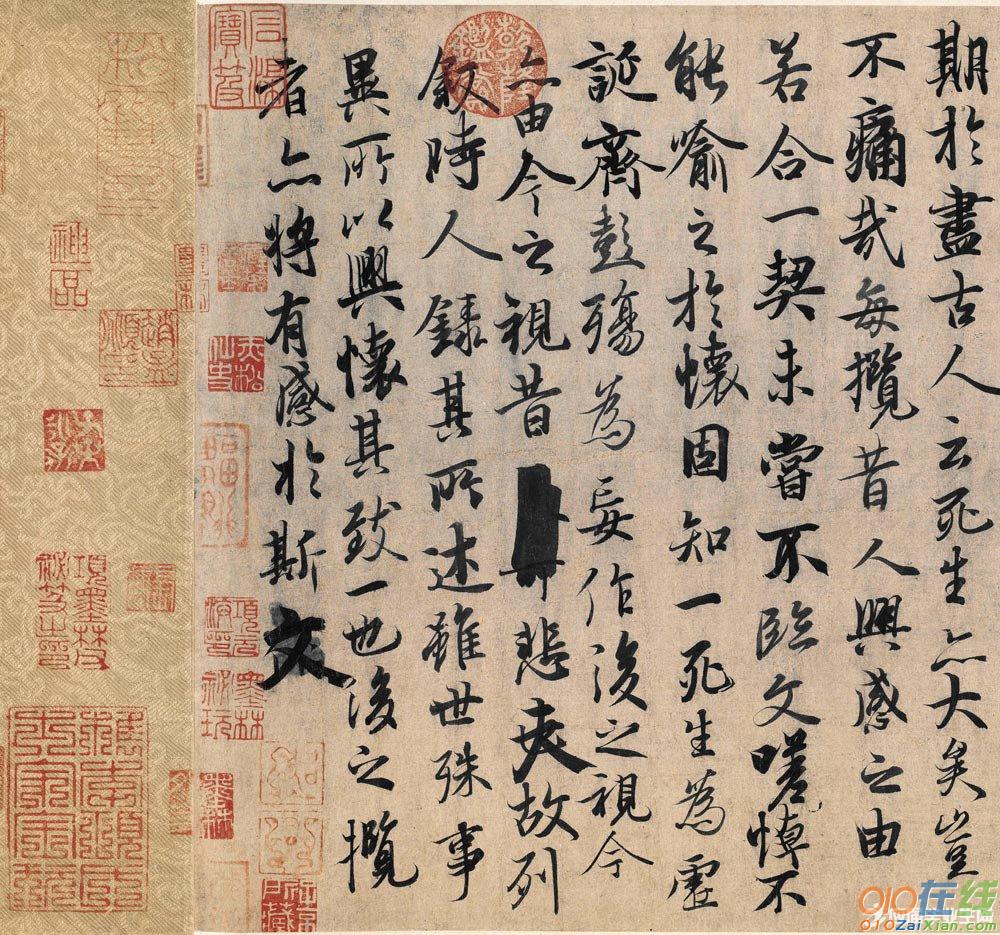 期於盡古人云死生亦大矣豈
不痛哉每攬昔人興感之由
若合一契未嘗不臨文嗟悼不
能喻之於懷固知一死生為虛
誕齊彭殤為妄作後之視今
亦由今之視昔悲夫故列
敘時人錄其所述雖世殊事
異所以興懷其致一也後之攬
者亦將有感於斯文
神品
項墨林
秘笈之印
墨林
秘玩
010在线
010ZaiXian.com